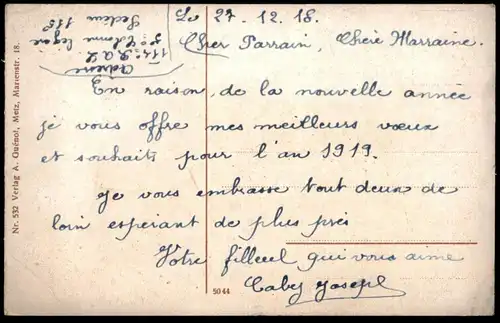 Le 27.12.18.
Cher Parrain, Chère Marraine.
En raison, de la nouvelle année
je vous offre mes meilleurs vœux
et souhaits pour l'an 1919.
Je vous embrasse tout deux de
loin espérant de plus près
Votre filleul qui vous aime
Caby Joseph
Adresse
111e R.A.L.
5e Colonne légère
Secteur 115
Nr. 532 Verlag A. Quénot, Metz, Marienstr. 18.
5044